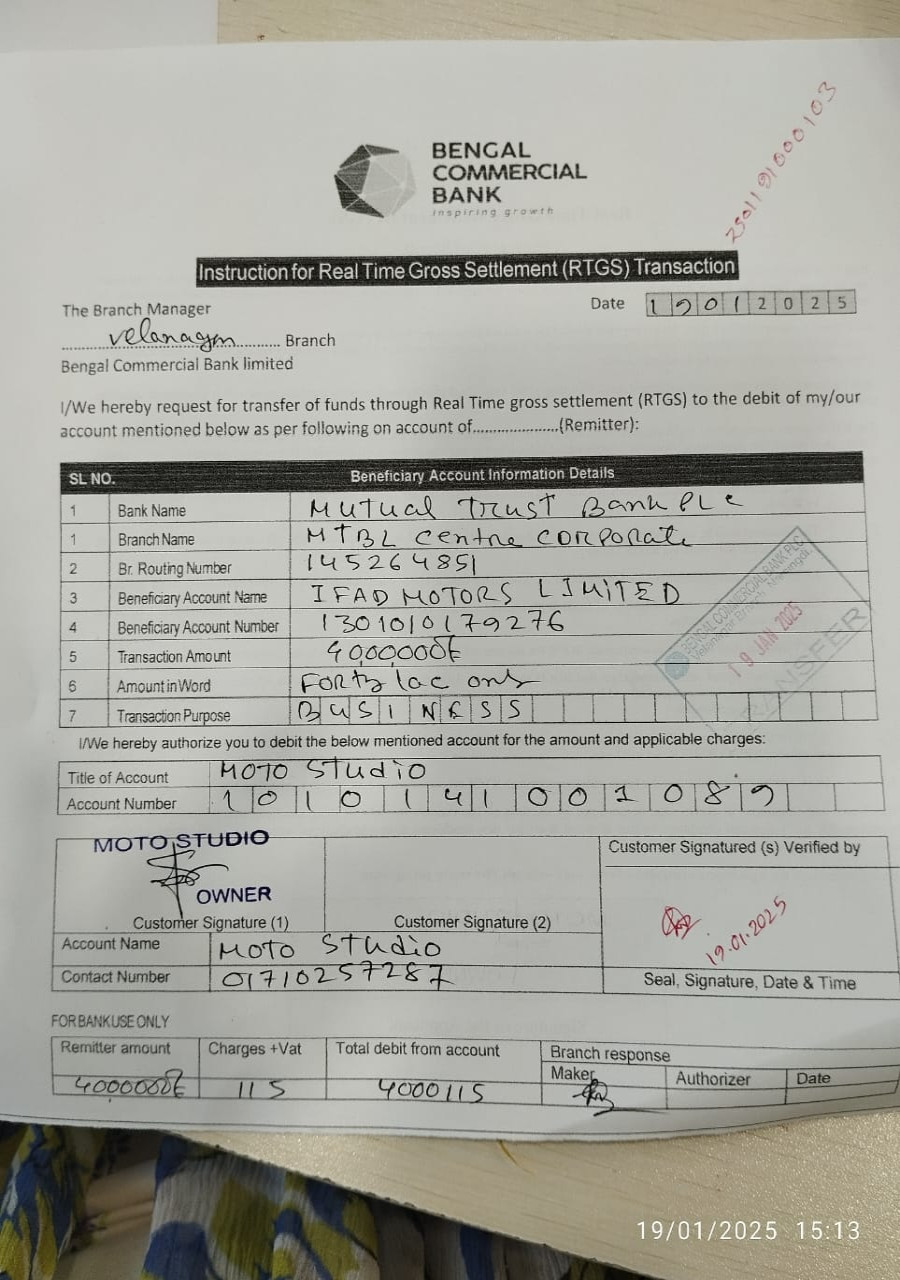 25011 91000103
BENGAL
COMMERCIAL
BANK
Inspiring growth
Instruction for Real Time Gross Settlement (RTGS) Transaction
The Branch Manager
Date 19012025
velanagar Branch
Bengal Commercial Bank limited
I/We hereby request for transfer of funds through Real Time gross settlement (RTGS) to the debit of my/our
account mentioned below as per following on account of.....................(Remitter):
SL NO. Beneficiary Account Information Details
1 Bank Name Mutual Trust Bank PLc
1 Branch Name MTBL Centre corporate
2 Br. Routing Number 145264851
3 Beneficiary Account Name IFAD MOTORS LIMITED
4 Beneficiary Account Number 1301010179276
5 Transaction Amount 4000000/-
6 Amount in Word Forty lac only
7 Transaction Purpose BUSINESS
BENGAL COMMERCIAL BANK PLC
19 JAN 2025
TRANSFER
I/We hereby authorize you to debit the below mentioned account for the amount and applicable charges:
Title of Account MOTO Studio
Account Number 1010141001089
MOTO STUDIO
OWNER
Customer Signature (1)
Customer Signature (2)
Customer Signatured (s) Verified by
19.01.2025
Seal, Signature, Date & Time
Account Name MOTO Studio
Contact Number 01710257287
FOR BANK USE ONLY
Remitter amount Charges +Vat Total debit from account Branch response
Maker Authorizer Date
4000000/- 115 4000115
19/01/2025 15:13